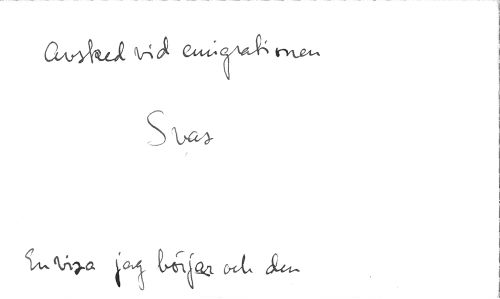 Avsked vid emigrationen
Svas
En visa jag börjar och den